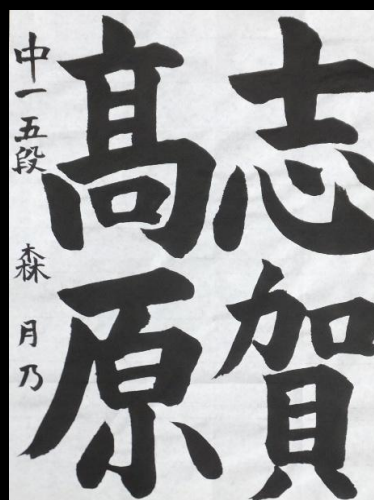 志賀
髙原
中一五段 森月乃